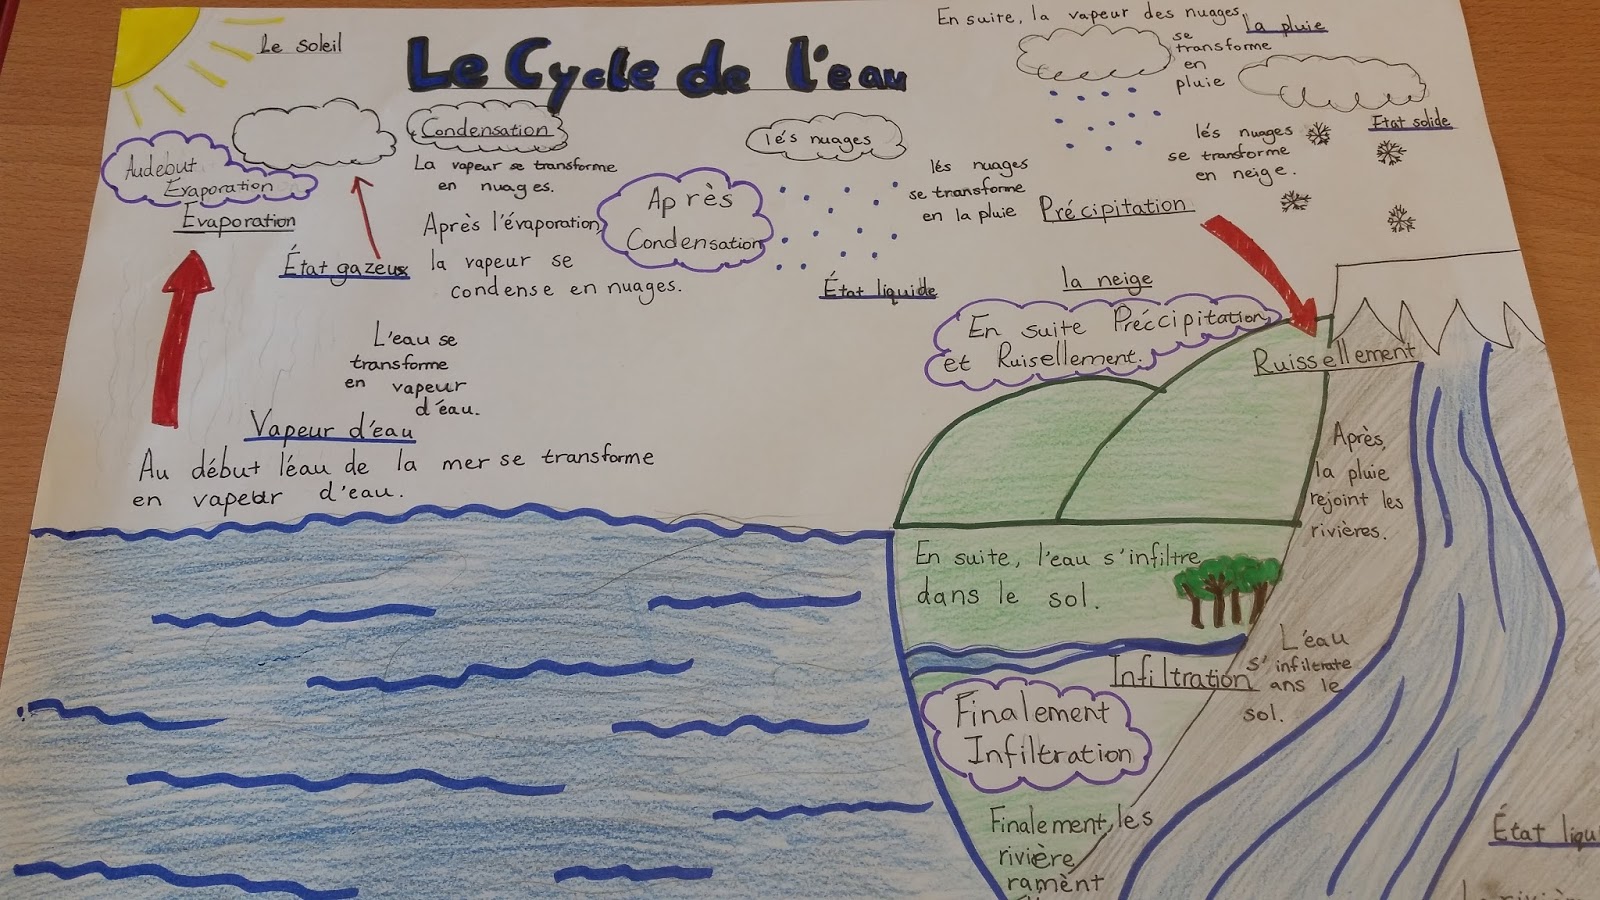 Le soleil
Le Cycle de l'eau
En suite, la vapeur des nuages
se
transforme
en
pluie
la pluie
Au debut
Évaporation
Évaporation
Condensation
La vapeur se transforme
en nuages.
Après l'évaporation,
la vapeur se
condense en nuages.
État gazeux
Après
Condensation
lés nuages
lés nuages
se transforme
en la pluie
État liquide
Précipitation
lés nuages
se transforme
en neige.
État solide
la neige
En suite Préccipitation
et Ruisellement.
Ruissellement
L'eau se
transforme
en vapeur
d'éau.
Vapeur d'eau
Au début léau de la mer se transforme
en vapeur d'eau.
Après,
la pluie
rejoint les
rivières.
En suite, l'eau s'infiltre
dans le sol.
Infiltration
L'éau
s'infiltrate
ans le
sol.
Finalement
Infiltration
Finalement, les
rivière
ramènt
État liqui